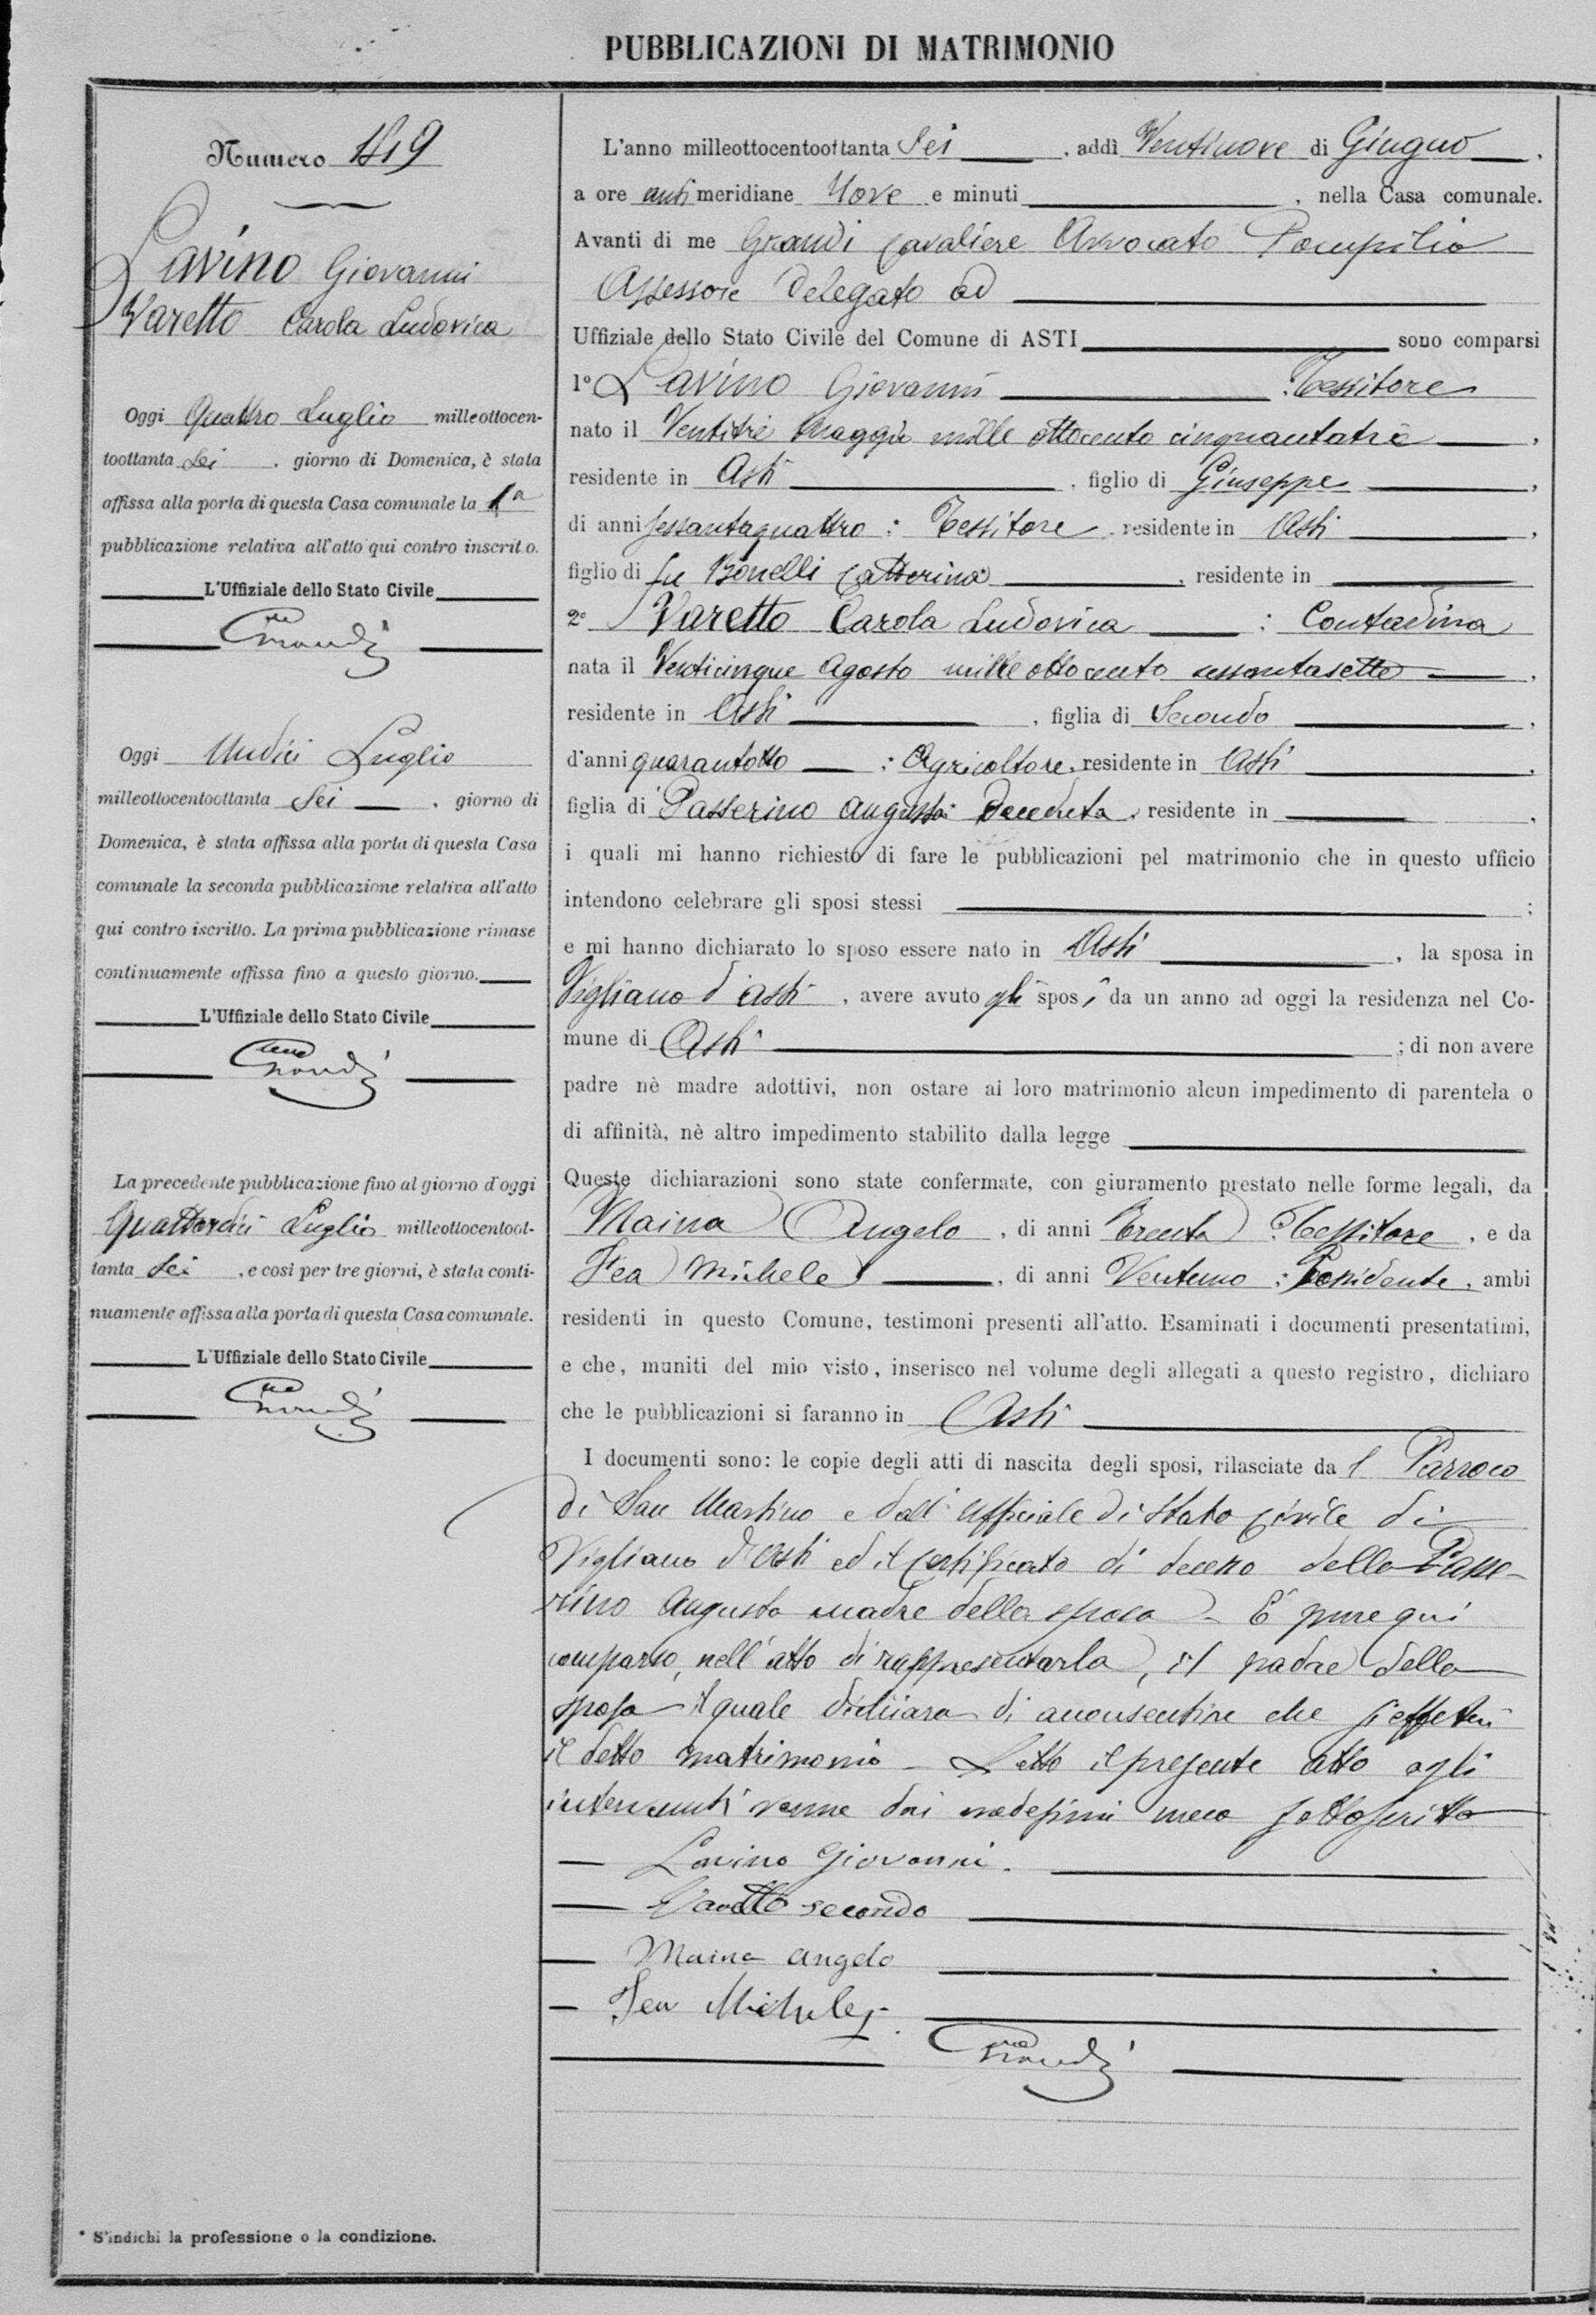 PUBBLICAZIONI DI MATRIMONIO
Numero 149
Lavino Giovanni
Varetto Carola Ludovica
Oggi Quattro Luglio milleottocen-
toottanta Sei, giorno di Domenica, è stata
affissa alla porta di questa Casa comunale la 1a
pubblicazione relativa all'atto qui contro inscritto.
L'Uffiziale dello Stato Civile
Grandi
Oggi Undici Luglio
milleottocentoottanta Sei, giorno di
Domenica, è stata affissa alla porta di questa Casa
comunale la seconda pubblicazione relativa all'atto
qui contro iscritto. La prima pubblicazione rimase
continuamente affissa fino a questo giorno.
L'Uffiziale dello Stato Civile
Grandi
La precedente pubblicazione fino al giorno d'oggi
Quattordici Luglio milleottocentoot-
tanta Sei, e così per tre giorni, è stata conti-
nuamente affissa alla porta di questa Casa comunale.
L'Uffiziale dello Stato Civile
Grandi
* S'indichi la professione o la condizione.
L'anno milleottocentoottanta Sei, addì Ventinove di Giugno,
a ore antimeridiane Nove e minuti, nella Casa comunale.
Avanti di me Grandi Cavaliere Avvocato Pompilio
Assessore Delegato ad
Uffiziale dello Stato Civile del Comune di ASTI sono comparsi
1º Lavino Giovanni : Tessitore
nato il Ventitre Maggio mille ottocento cinquantatre,
residente in Asti, figlio di Giuseppe,
di anni sessantaquattro : Tessitore, residente in Asti,
figlio di fu Bonelli Catterina, residente in
2º Varetto Carola Ludovica : Contadina
nata il Venticinque Agosto mille ottocento sessantasette,
residente in Asti, figlia di Secondo,
d'anni quarantotto : Agricoltore, residente in Asti,
figlia di Passerino Augusta Deceduta, residente in,
i quali mi hanno richiesto di fare le pubblicazioni pel matrimonio che in questo ufficio
intendono celebrare gli sposi stessi ;
e mi hanno dichiarato lo sposo essere nato in Asti, la sposa in
Vigliano d'Asti, avere avuto gli sposi da un anno ad oggi la residenza nel Co-
mune di Asti ; di non avere
padre nè madre adottivi, non ostare ai loro matrimonio alcun impedimento di parentela o
di affinità, nè altro impedimento stabilito dalla legge
Queste dichiarazioni sono state confermate, con giuramento prestato nelle forme legali, da
Maina Angelo, di anni Trenta : Tessitore, e da
Fea Michele, di anni Ventuno : Possidente, ambi
residenti in questo Comune, testimoni presenti all'atto. Esaminati i documenti presentatimi,
e che, muniti del mio visto, inserisco nel volume degli allegati a questo registro, dichiaro
che le pubblicazioni si faranno in Asti
I documenti sono: le copie degli atti di nascita degli sposi, rilasciate dal Parroco
di San Martino e dall'Ufficiale di Stato Civile di
Vigliano d'Asti ed il Certificato di decesso della Passe-
rino Augusta madre della sposa - È pure qui
comparso, nell'atto di rappresentarla, il padre della
sposa il quale dichiara di acconsentire che s'effettui
il detto matrimonio - Letto il presente atto agli
intervenuti venne dai medesimi meco sottoscritto
Lavino Giovanni.
Varetto secondo
Maina Angelo
Fea Michele
Grandi